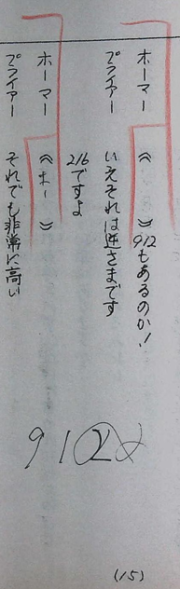 ホーマー 《 》912もあるのか!
プライアー いえそれは逆さまです
216ですよ
ホーマー 《ホー》
プライアー それでも非常に高い
9102
(15)